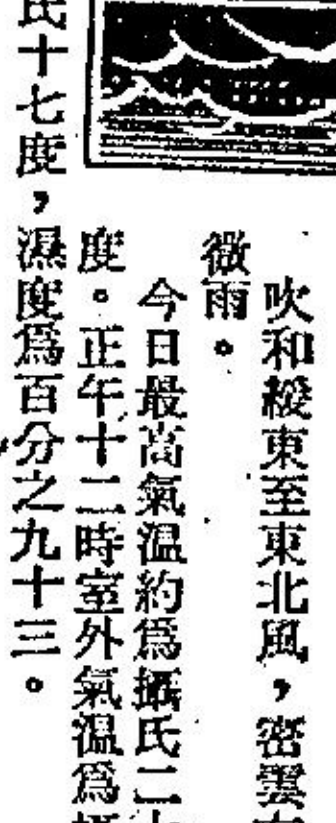 吹和緩東至東北風，密雲有
微雨。
今日最高氣溫約爲攝氏二十
度。正午十二時室外氣溫爲攝
氏十七度，濕度爲百分之九十三。